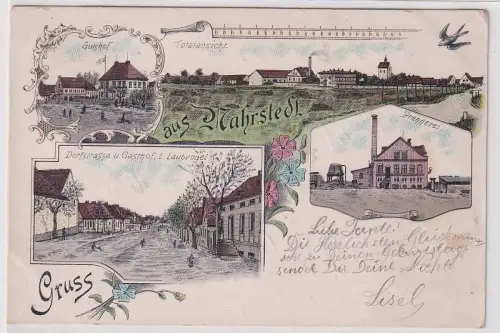 Gutshof
Totalansicht.
aus Mahrstedt.
Brennerei
Dorfstrasse u. Gasthof, L. Laubvogel
Gruss
Liebe Tante!
Die herzlichsten Glückwün
sche zu Deinem Geburtstage
sendet Dir Deine Nichte
Lisel